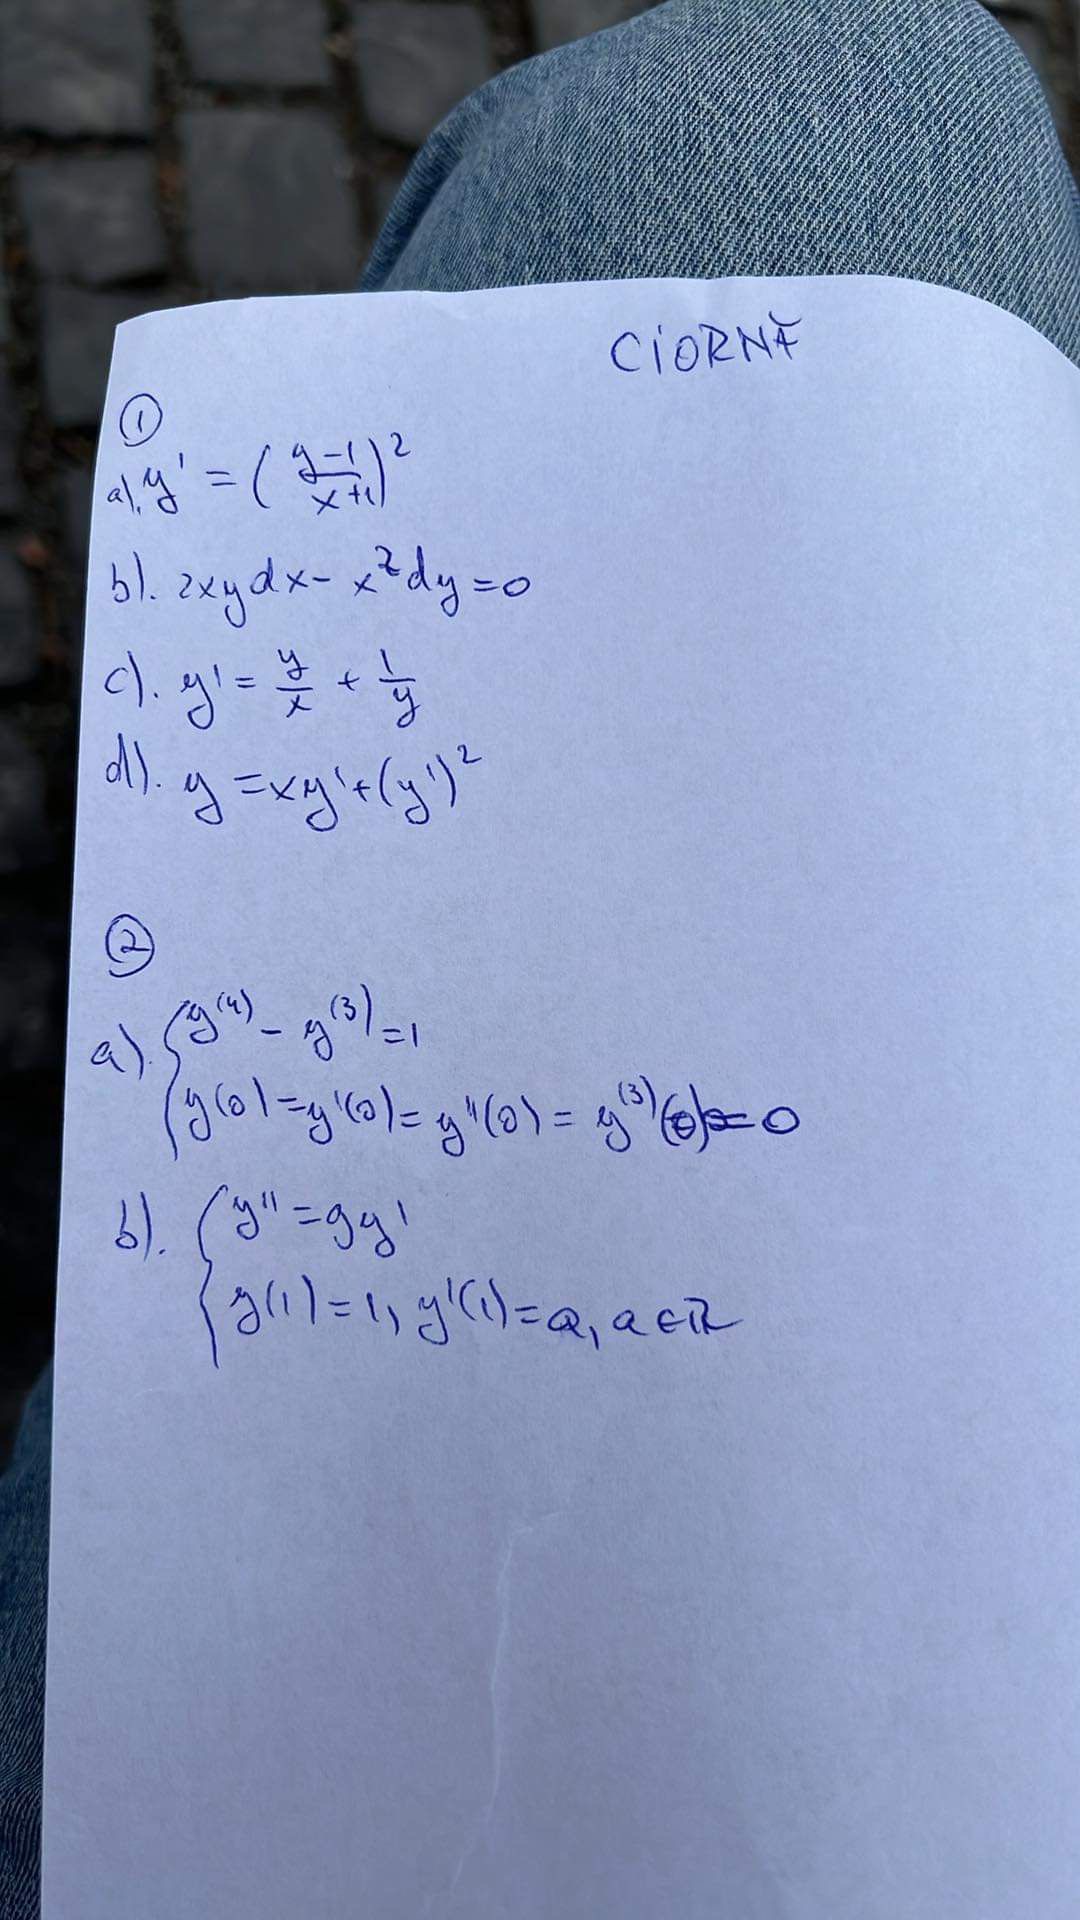 CIORNĂ
①
a). y' = ((y-1)/(x+1))²
b). 2xydx - x²dy = 0
c). y' = y/x + 1/y
d). y = xy' + (y')²
②
a). { y⁽⁴⁾ - y⁽³⁾ = 1
y(0) = y'(0) = y''(0) = y⁽³⁾(0) = 0
b). { y'' = 9y'
y(1) = 1, y'(1) = a, a ∈ ℝ